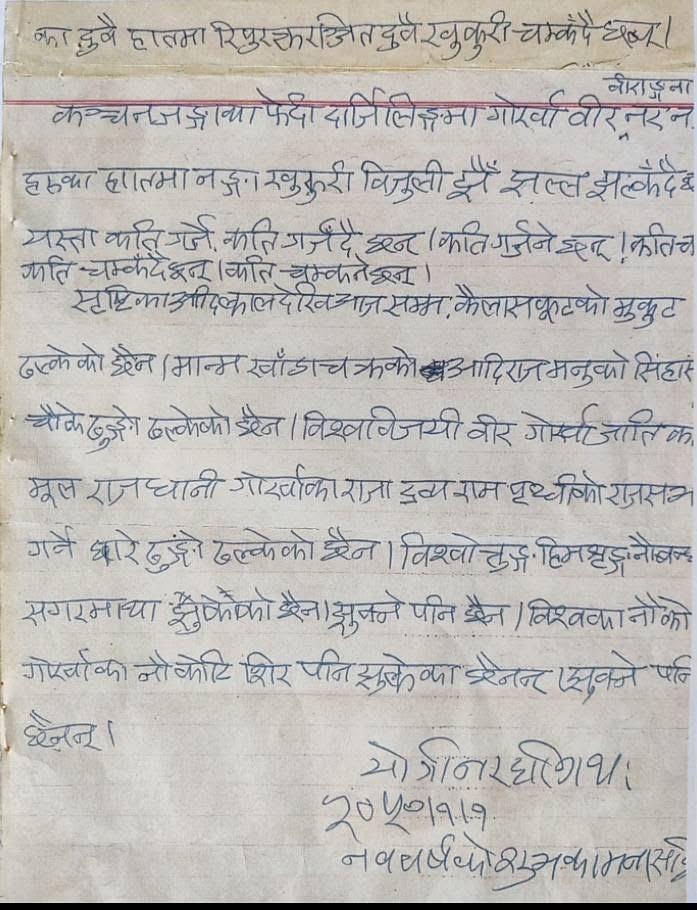 का दुवै हातमा रिपुरक्तरञ्जित दुवै खुकुरी चम्कँदै छन् ।
वीराङ्गना
कञ्चनजङ्गाका फेदी दार्जिलिङ्गमा गोर्खा वीर नर न
हरुका हातमा नङ्गा खुकुरी विजुली झैँ झल्ल झल्कँदैछ
यस्ता कति गर्जे, कति गर्जँदै छन् । कति गर्जनेछन् । कति च
कति चम्कँदैछन् । कति चम्कनेछन् ।
सृष्टिका आदिकालदेखि आज सम्म, कैलासकूटको मुकुट
ढल्केको छैन । मान्म खाँडाचक्रको आदिराज मनुको सिंहास
चौके ढुङ्गो ढल्केको छैन । विश्वविजयी वीर गोर्खा जाति क
मूल राजधानी गोर्खाका राजा द्रव्य राम पृथ्वीको राजसभ
गर्ने थारे ढुङ्गो ढल्केको छैन । विश्वोत्तुङ्ग हिमशृङ्ग नौबन्ध
सगरमाथा झुकेको छैन । झुक्ने पनि छैन । विश्वका नौ को
गोर्खाका नौ कोटि शिर पनि झुकेका छैनन् । झुक्ने पनि
छैनन् ।
योगी नरहरिनाथ
२०५०।१।१
नववर्षको शुभकामना सहि